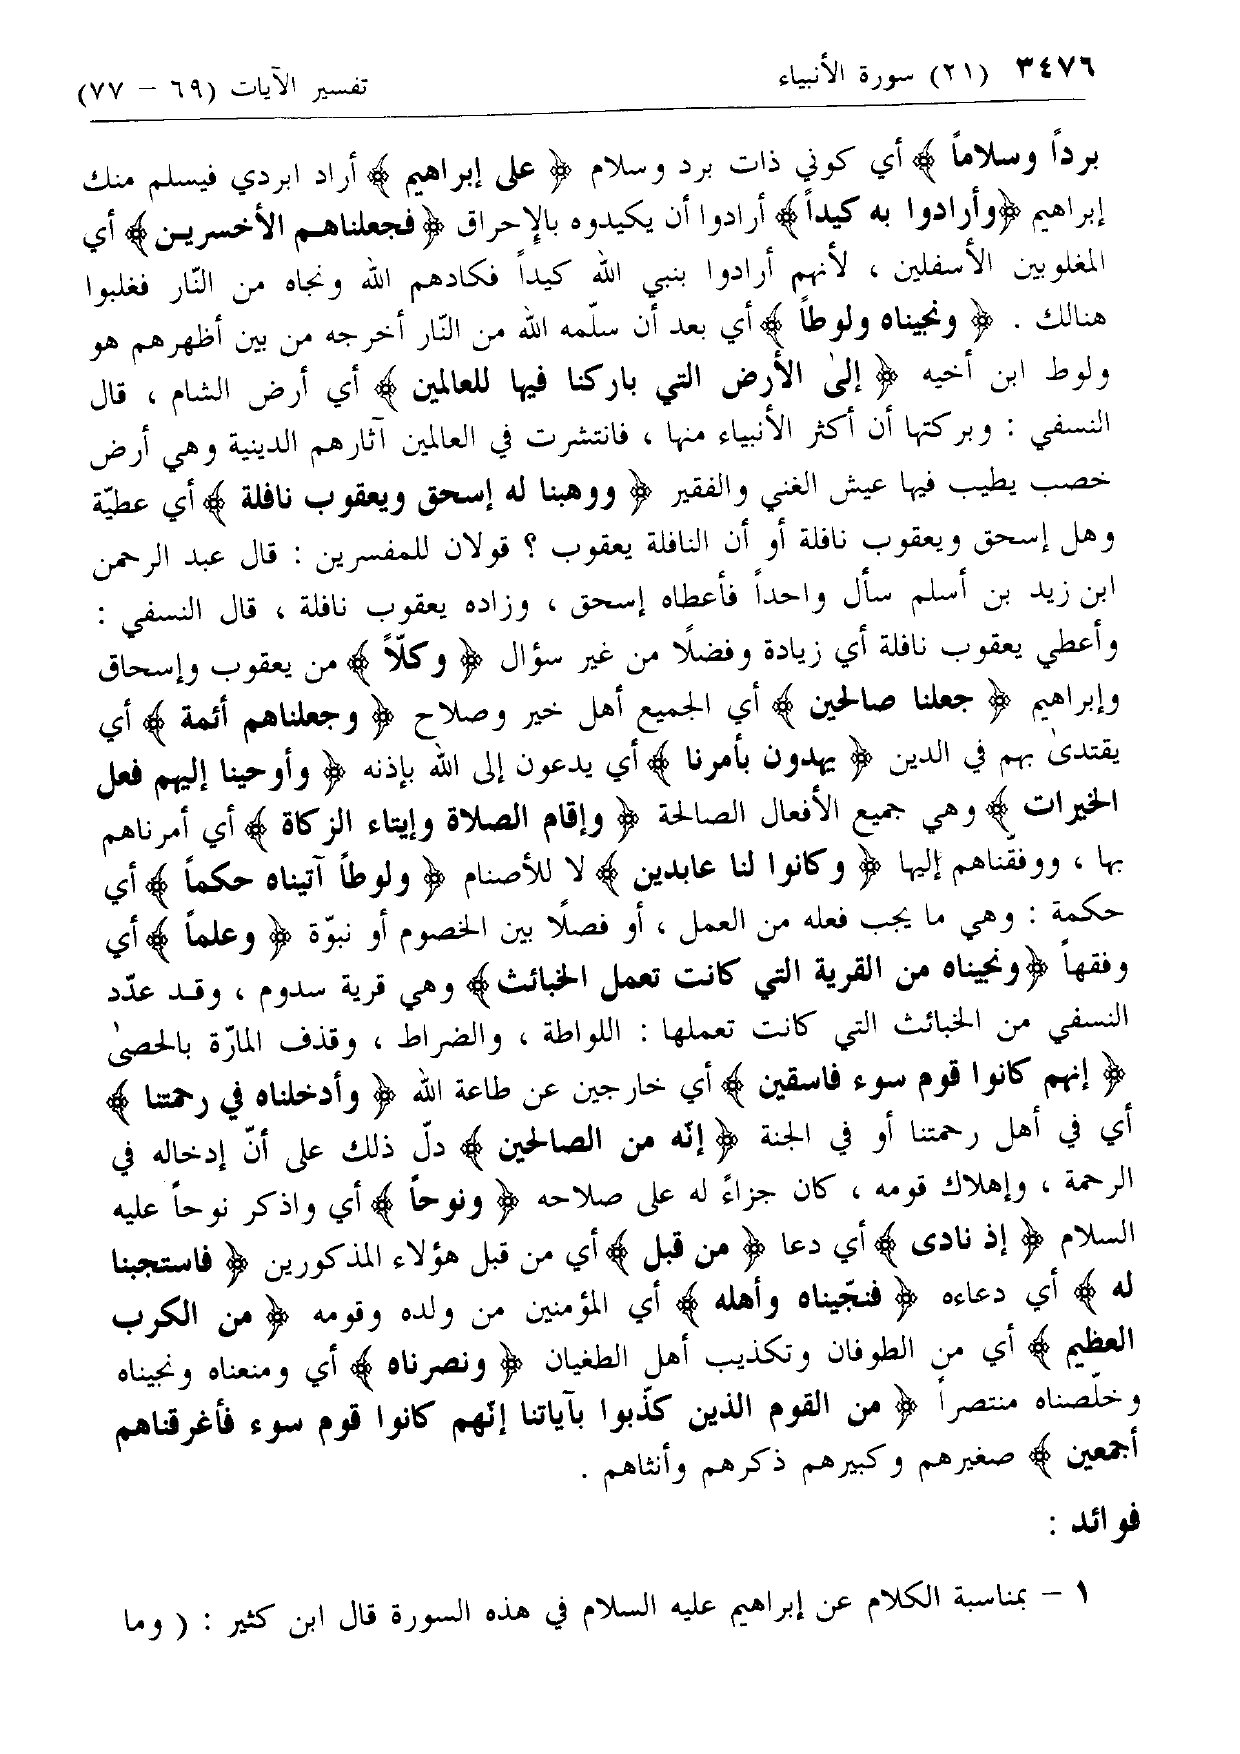 ٣٤٧٦ (٢١) سورة الأنبياء تفسير الآيات (٦٩ – ٧٧)
برداً وسلاماً ﴾ أي كوني ذات برد وسلام ﴿ على إبراهيم ﴾ أراد ابردي فيسلم منك
إبراهيم ﴿وأرادوا به كيداً﴾ أرادوا أن يكيدوه بالإحراق ﴿فجعلناهم الأخسرين﴾ أي
المغلوبين الأسفلين ، لأنهم أرادوا بنبي الله كيداً فكادهم الله ونجاه من النّار فغلبوا
هنالك . ﴿ ونجيناه ولوطاً ﴾ أي بعد أن سلّمه الله من النّار أخرجه من بين أظهرهم هو
ولوط ابن أخيه ﴿ إلىٰ الأرض التي باركنا فيها للعالمين ﴾ أي أرض الشام ، قال
النسفي : وبركتها أن أكثر الأنبياء منها ، فانتشرت في العالمين آثارهم الدينية وهي أرض
خصب يطيب فيها عيش الغني والفقير ﴿ ووهبنا له إسحق ويعقوب نافلة ﴾ أي عطيّة
وهل إسحق ويعقوب نافلة أو أن النافلة يعقوب ؟ قولان للمفسرين : قال عبد الرحمن
ابن زيد بن أسلم سأل واحداً فأعطاه إسحق ، وزاده يعقوب نافلة ، قال النسفي :
وأعطي يعقوب نافلة أي زيادة وفضلًا من غير سؤال ﴿ وكلّاً ﴾ من يعقوب وإسحاق
وإبراهيم ﴿ جعلنا صالحين ﴾ أي الجميع أهل خير وصلاح ﴿ وجعلناهم أئمة ﴾ أي
يقتدىٰ بهم في الدين ﴿ يهدون بأمرنا ﴾ أي يدعون إلى الله بإذنه ﴿ وأوحينا إليهم فعل
الخيرات ﴾ وهي جميع الأفعال الصالحة ﴿ وإقام الصلاة وإيتاء الزكاة ﴾ أي أمرناهم
بها ، ووفقّناهم إليها ﴿ وكانوا لنا عابدين ﴾ لا للأصنام ﴿ ولوطاً آتيناه حكماً ﴾ أي
حكمة : وهي ما يجب فعله من العمل ، أو فصلًا بين الخصوم أو نبوّة ﴿ وعلماً ﴾ أي
وفقهاً ﴿ونجيناه من القرية التي كانت تعمل الخبائث﴾ وهي قرية سدوم ، وقد عدّد
النسفي من الخبائث التي كانت تعملها : اللواطة ، والضراط ، وقذف المارّة بالحصىٰ
﴿ إنهم كانوا قوم سوء فاسقين ﴾ أي خارجين عن طاعة الله ﴿ وأدخلناه في رحمتنا ﴾
أي في أهل رحمتنا أو في الجنة ﴿ إنّه من الصالحين ﴾ دلّ ذلك على أنّ إدخاله في
الرحمة ، وإهلاك قومه ، كان جزاءً له على صلاحه ﴿ ونوحاً ﴾ أي واذكر نوحاً عليه
السلام ﴿ إذ نادى ﴾ أي دعا ﴿ من قبل ﴾ أي من قبل هؤلاء المذكورين ﴿ فاستجبنا
له ﴾ أي دعاءه ﴿ فنجّيناه وأهله ﴾ أي المؤمنين من ولده وقومه ﴿ من الكرب
العظيم ﴾ أي من الطوفان وتكذيب أهل الطغيان ﴿ ونصرناه ﴾ أي ومنعناه ونجيناه
وخلّصناه منتصراً ﴿ من القوم الذين كذّبوا بآياتنا إنّهم كانوا قوم سوء فأغرقناهم
أجمعين ﴾ صغيرهم وكبيرهم ذكرهم وأنثاهم .
فوائد :
١ – بمناسبة الكلام عن إبراهيم عليه السلام في هذه السورة قال ابن كثير : ( وما